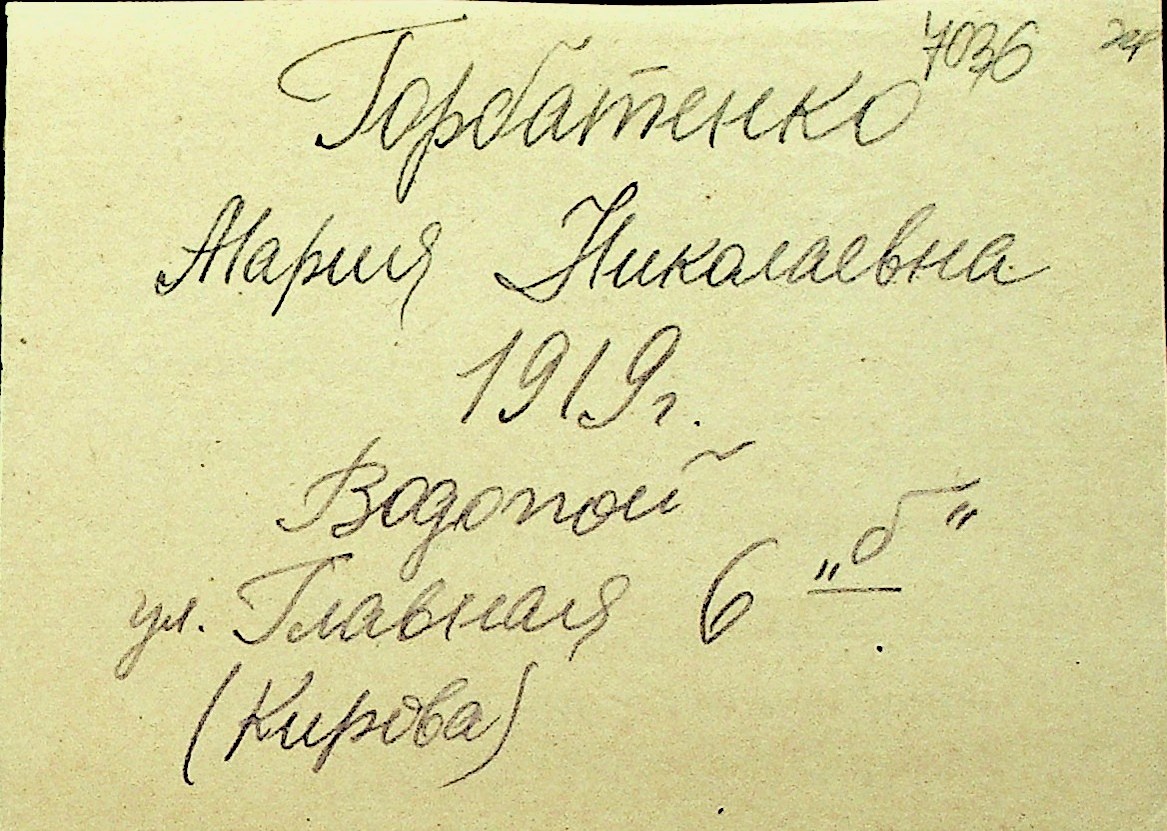 7036
Горбатенко
Мария Николаевна
1919г.
Водопой
ул. Главная 6 „б“
(Кирова)